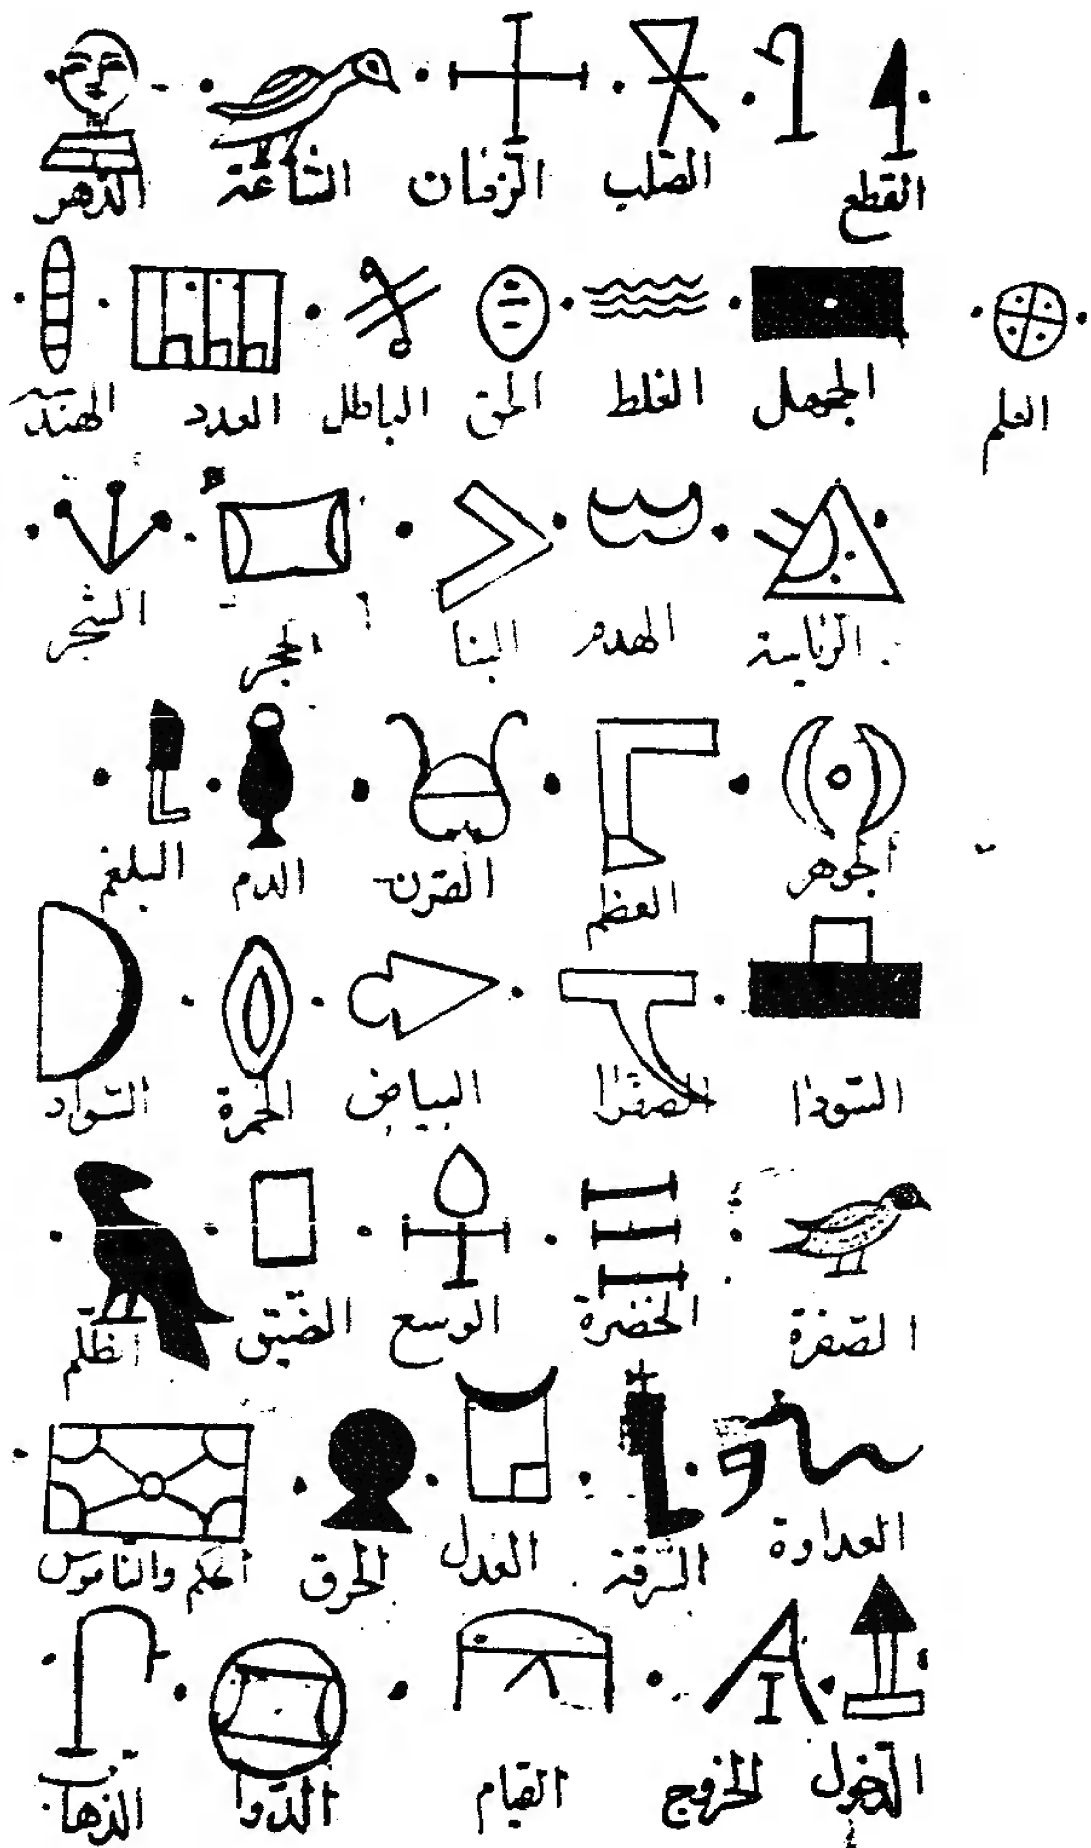 القطع الصلب الزمان الساعة الدهر
العلم الجهل الغلط الحق الباطل العدد الهندسة
الرياسة الهدم البنا الحجر الشجر
الجوهر العظم القرن الدم البلغم
السودا الصفرا البياض الحمرة السواد
الصفرة الخضرة الوسع الضيق الظلم
العداوة السرقة العدل الحرق الحكم والناموس
الدخول الخروج القيام الدوا الذهاب